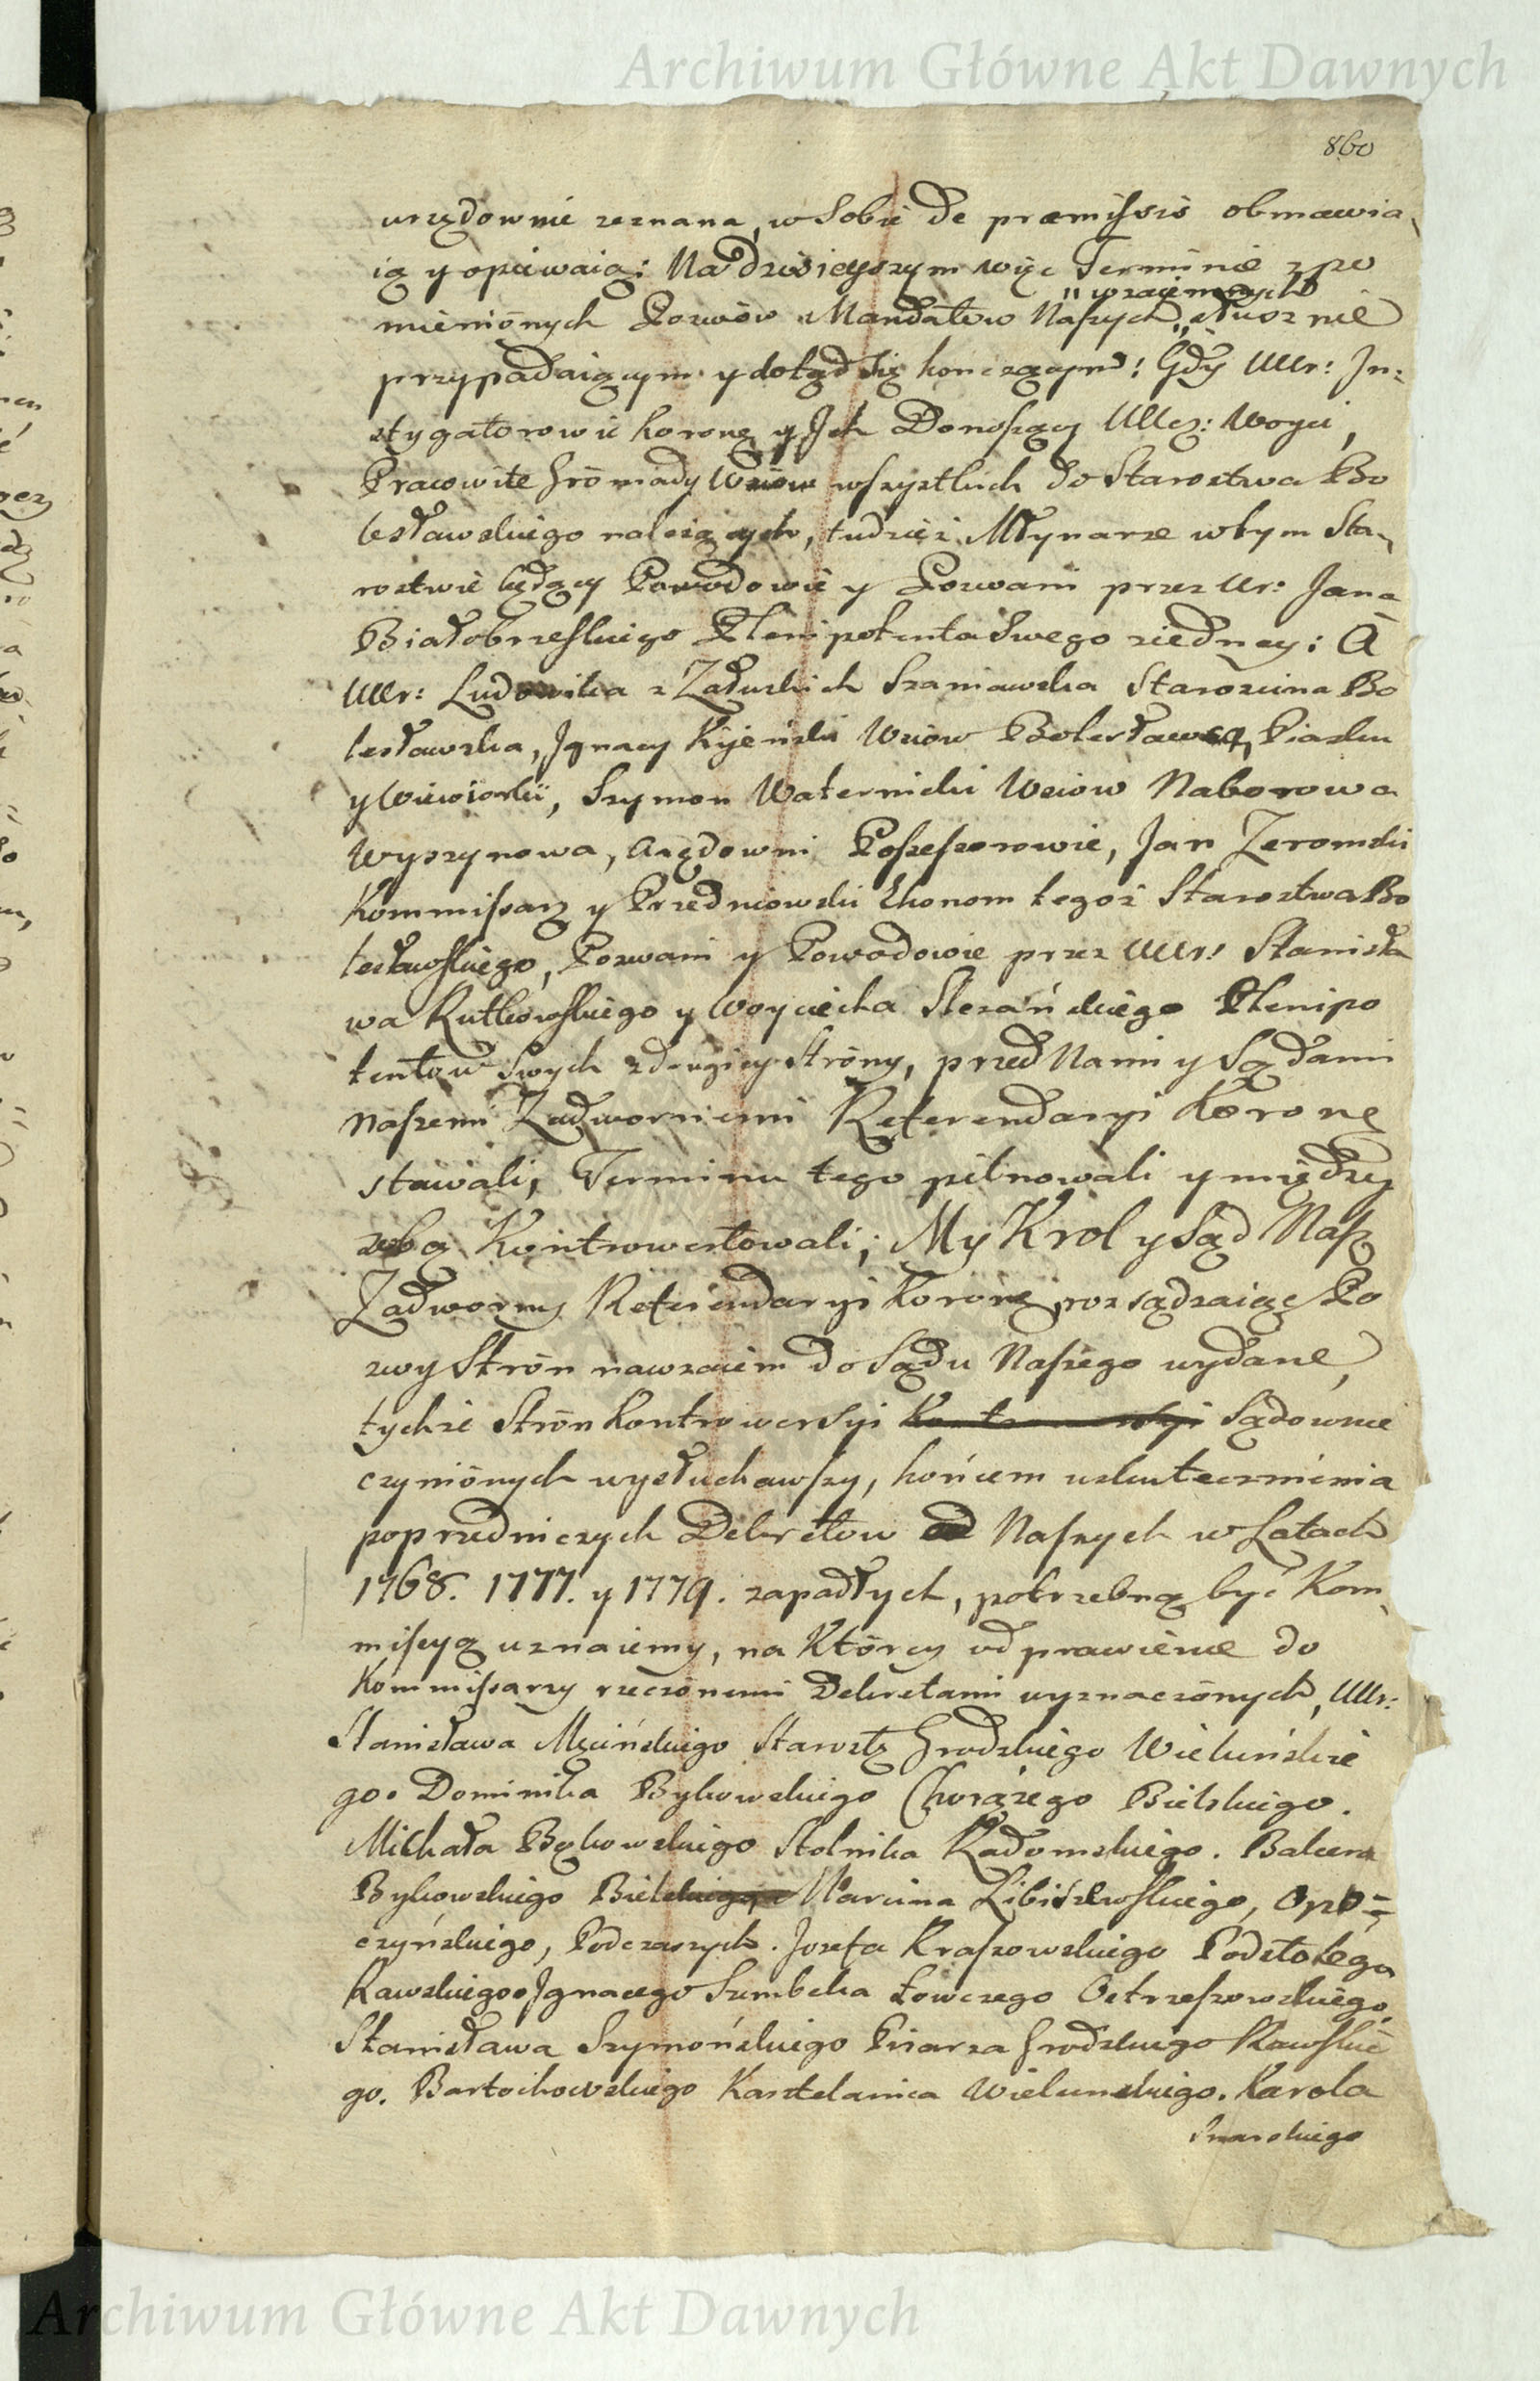 Archiwum Główne Akt Dawnych
860
urzędownie zeznana, w Sobie de præmissis obmawia,
ią y opiewaią: Na dzisieyszym więc Terminie z po
wzaiemnych
mienionych Pozwów Mandatów Naszych, słusznie
przypadaiącym y dotąd się kończącym: Gdy Ur: In:
stygatorowie koronę y Ich Donoszący Ucz: Woyci,
Pracowite Grómady Wsiów wszystkich do Starostwa Bo
lesławskiego należących, tudzież Młynarze w tym Sta,
rostwie będący Powodowie y Pozwani przez Ur: Jana
Białobrzeskiego Plenipotenta Swego z iedney: A
Ur: Ludowika z Załuskich Szaniawska Starościna Bo
lesławska, Jgnacy Kijeński Wsiow Bolesławca, Piasku
y Wiewiorki, Szymon Waternicki Wsiow Naborowa
Wyszynowa, Arędowni Possessorowie, Jan Zeromski
Kommissarz y Przedmowski Ekonom tegoż Starostwa Bo
lesławskiego, Pozwani y Powodowie przez Ur: Stanisła
wa Rutkowskiego y Woyciecha Slezańskiego Plenipo
tentów Swych z drugiey Stróny, przed Nami y Sądami
Naszemi Zadwornemi Referendaryi Koronę
stawali, Terminu tego pilnowali y między
sobą Kontrowertowali; My Krol y Sąd Nasz
Zadworny Referendaryi Koronę rozsądzaiąc Po
zwy Strón nawzaiem do Sądu Naszego wydane,
tychże Strón Kontrowersyi Kontrowersyi Sądownie
czyniónych wysłuchawszy, końcem uskutecznienia
poprzedniczych Dekretów Naszych w Latach
1768. 1777. y 1779. zapadłych, potrzebną być Kom,
missyą uznaiemy, na Którey odprawienie do
Kommissarzy rzeczónemi Dekretami wyznaczónych, Ur:
Stanisława Męcińskiego Starostę Grodzkiego Wieluńskie
go. Dominika Bykowskiego Chorążego Bielskiego.
Michała Bękowskiego Stolnika Radomskiego. Balcera
Bykowskiego Bielskiego Marcina Libiszewskiego, Opo=
czyńskiego, Podczaszych. Jozefa Kraszowskiego Podstolego
Rawskiego. Jgnacego Sumbcka Łowczego Ostrzeszowskiego
Stanisława Szymońskiego Pisarza Grodzkiego Rawskie
go. Bartochowskiego Kasztelanica Wielunskiego. Karola
Snarskiego
Archiwum Główne Akt Dawnych